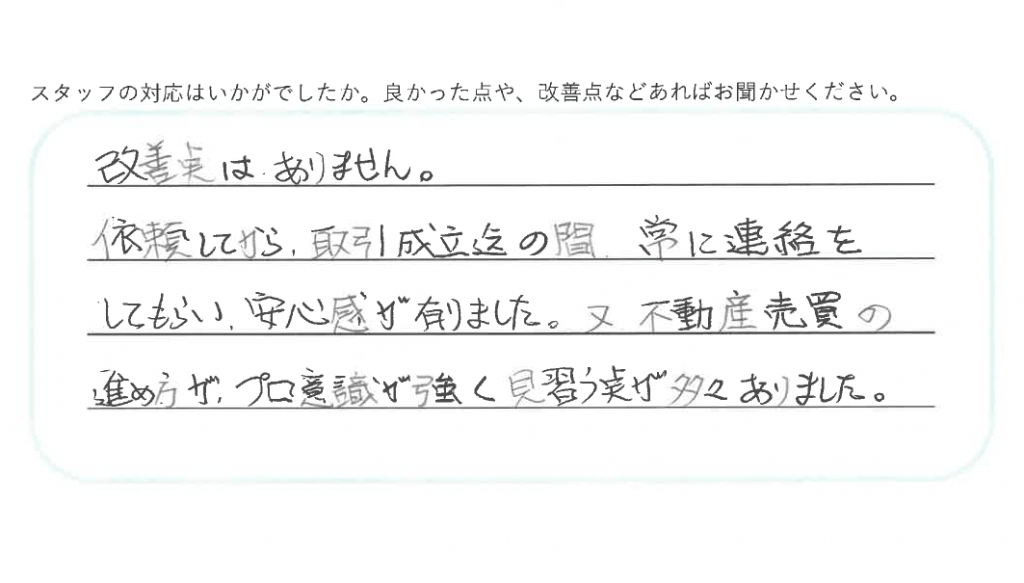 スタッフの対応はいかがでしたか。良かった点や、改善点などあればお聞かせください。
改善点は、ありません。
依頼してから、取引成立迄の間、常に連絡を
してもらい、安心感が有りました。又 不動産売買の
進め方が、プロ意識が強く見習う点が多々ありました。